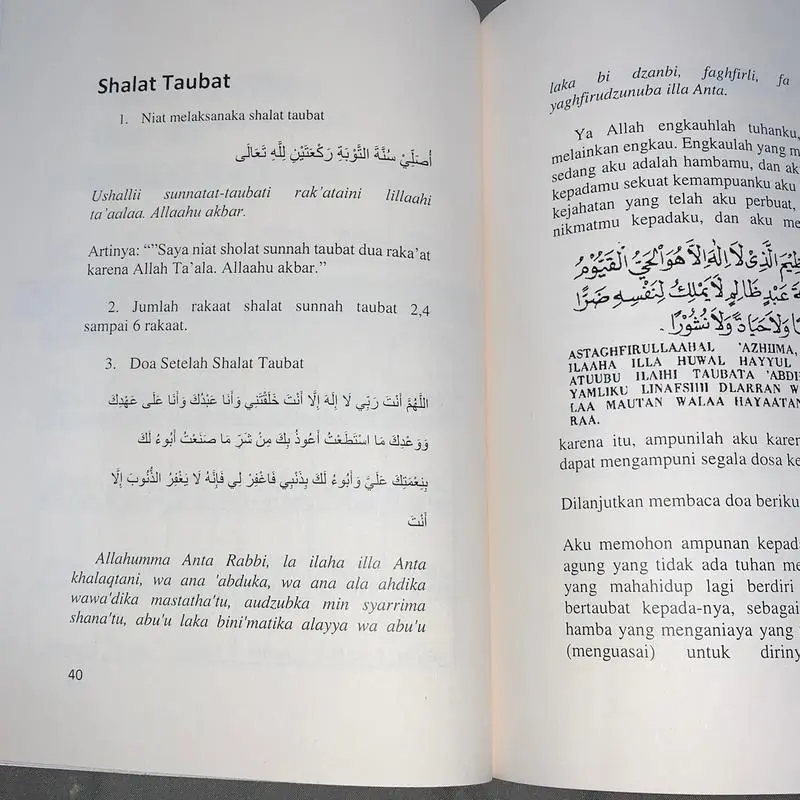 Shalat Taubat
1. Niat melaksanaka shalat taubat
أُصَلِّيْ سُنَّةَ التَّوْبَةِ رَكْعَتَيْنِ لِلَّهِ تَعَالَى
Ushallii sunnatat-taubati rak'ataini lillaahi
ta'aalaa. Allaahu akbar.
Artinya: “”Saya niat sholat sunnah taubat dua raka'at
karena Allah Ta'ala. Allaahu akbar.”
2. Jumlah rakaat shalat sunnah taubat 2,4
sampai 6 rakaat.
3. Doa Setelah Shalat Taubat
اللَّهُمَّ أَنْتَ رَبِّي لَا إِلَهَ إِلَّا أَنْتَ خَلَقْتَنِي وَأَنَا عَبْدُكَ وَأَنَا عَلَى عَهْدِكَ
وَوَعْدِكَ مَا اسْتَطَعْتُ أَعُوذُ بِكَ مِنْ شَرِّ مَا صَنَعْتُ أَبُوءُ لَكَ
بِنِعْمَتِكَ عَلَيَّ وَأَبُوءُ لَكَ بِذَنْبِي فَاغْفِرْ لِي فَإِنَّهُ لَا يَغْفِرُ الذُّنُوبَ إِلَّا
أَنْتَ
Allahumma Anta Rabbi, la ilaha illa Anta
khalaqtani, wa ana 'abduka, wa ana ala ahdika
wawa'dika mastatha'tu, audzubka min syarrima
shana'tu, abu'u laka bini'matika alayya wa abu'u
40
laka bi dzanbi, faghfirli, fa
yaghfirudzunuba illa Anta.
Ya Allah engkauhlah tuhanku,
melainkan engkau. Engkaulah yang
sedang aku adalah hambamu, dan
kepadamu sekuat kemampuanku aku
kejahatan yang telah aku perbuat,
nikmatmu kepadaku, dan aku
الَّذِيْ لَا إِلٰهَ إِلَّا هُوَ الْحَيُّ الْقَيُّوْمُ
عَبْدٍ ظَالِمٍ لَا يَمْلِكُ لِنَفْسِهِ ضَرًّا
وَلَا حَيَاةً وَلَا نُشُوْرًا.
ASTAGHFIRULLAAHAL 'AZHIIMA,
ILAAHA ILLA HUWAL HAYYUL
ATUUBU ILAIHI TAUBATA
YAMLIKU LINAFSIHI DLARRAN
LAA MAUTAN WALAA HAYAATAN
RAA.
karena itu, ampunilah aku
dapat mengampuni segala dosa
Dilanjutkan membaca doa
Aku memohon ampunan
agung yang tidak ada tuhan
yang mahahidup lagi berdiri
bertaubat kepada-nya,
hamba yang menganiaya yang
(menguasai) untuk